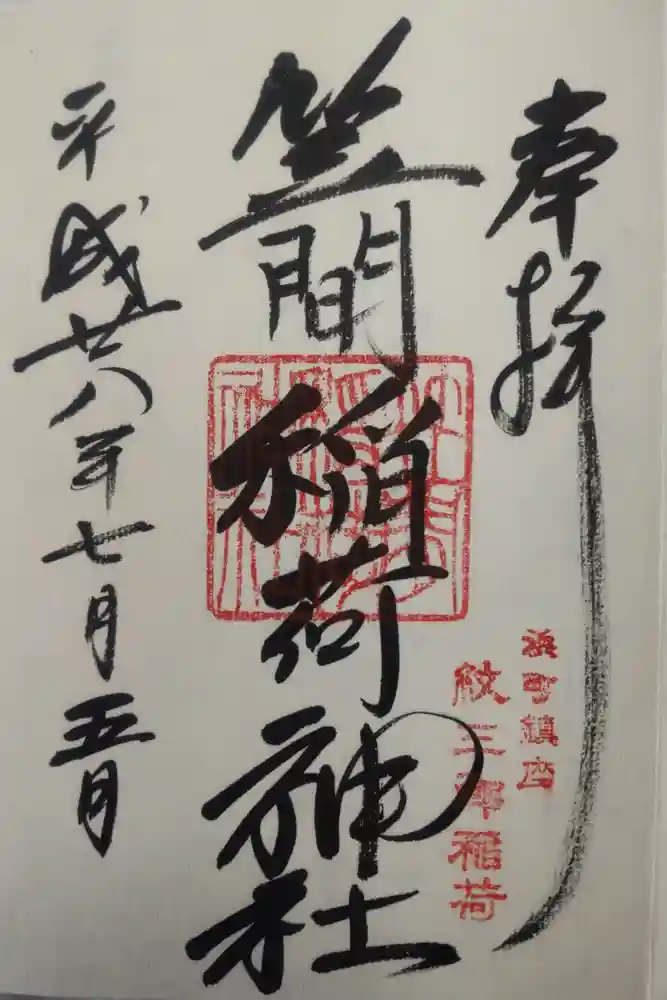 奉拝
浜町鎮座
紋三郎稲荷
笠間稲荷神社
平成廿八年七月五日